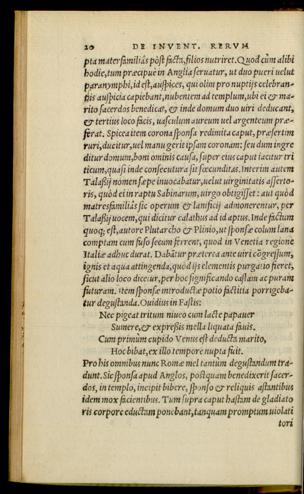 20 DE INVENT. RERVM
pta materfamiliâs pòst facta, filios nutriret. Quod cùm alibi
hodie, tum præcipuè in Anglia seruatur, ut duo pueri uelut
paranymphi, id est, auspices, qui olim pro nuptijs celebran-
dis auspicia capiebant, nubentem ad templum, ubi ei & ma-
rito sacerdos benedicat, & inde domum duo uiri deducant,
& tertius loco facis, uasculum aureum uel argenteum præ-
ferat. Spicea item corona sponsa redimita caput, præsertim
ruri, ducitur, uel manu gerit ipsam coronam: seu dum ingre
ditur domum, boni ominis causa, super eius caput iacitur tri
ticum, quasi inde consecutura sit fœcunditas. Interim autem
Talassij nomen sæpe inuocabatur, uelut uirginitatis asserto-
ris, quòd ei in raptu Sabinarum, uirgo obtigisset: aut quòd a
matresfamiliâs sic operum & lanificij admonerentur, per
Talassij uocem, qui dicitur calathus ad id aptus. Inde factum
quoq; est, autore Plutarcho & Plinio, ut sponsæ colum lana
comptam cum fuso secum ferrent, quod in Venetia regione
Italiæ adhuc durat. Dabatur præterea ante uiri cōgressum,
ignis et aqua attingenda, quòd ijs elementis purgatio fieret,
sicut alio loco dicetur, per hoc significando castam ac puram
futuram. Item sponsæ introductæ potio factitia porrigeba-
tur degustanda. Ouidius in Fastis:
Nec pigeat tritum niueo cum lacte papauer
Sumere, & expressis mella liquata fauis.
Cum primùm cupido Venus est deducta marito,
Hoc bibat, ex illo tempore nupta fuit.
Pro his omnibus nunc Romæ mel tantùm degustandum tra-
dunt. Sic sponsa apud Anglos, póstquam benedixerit sacer-
dos, in templo, incipit bibere, sponso & reliquis astantibus
idem mox facientibus. Tum supra caput hastam de gladiato
ris corpore eductam ponebant, tanquam promptum uiolati
tori